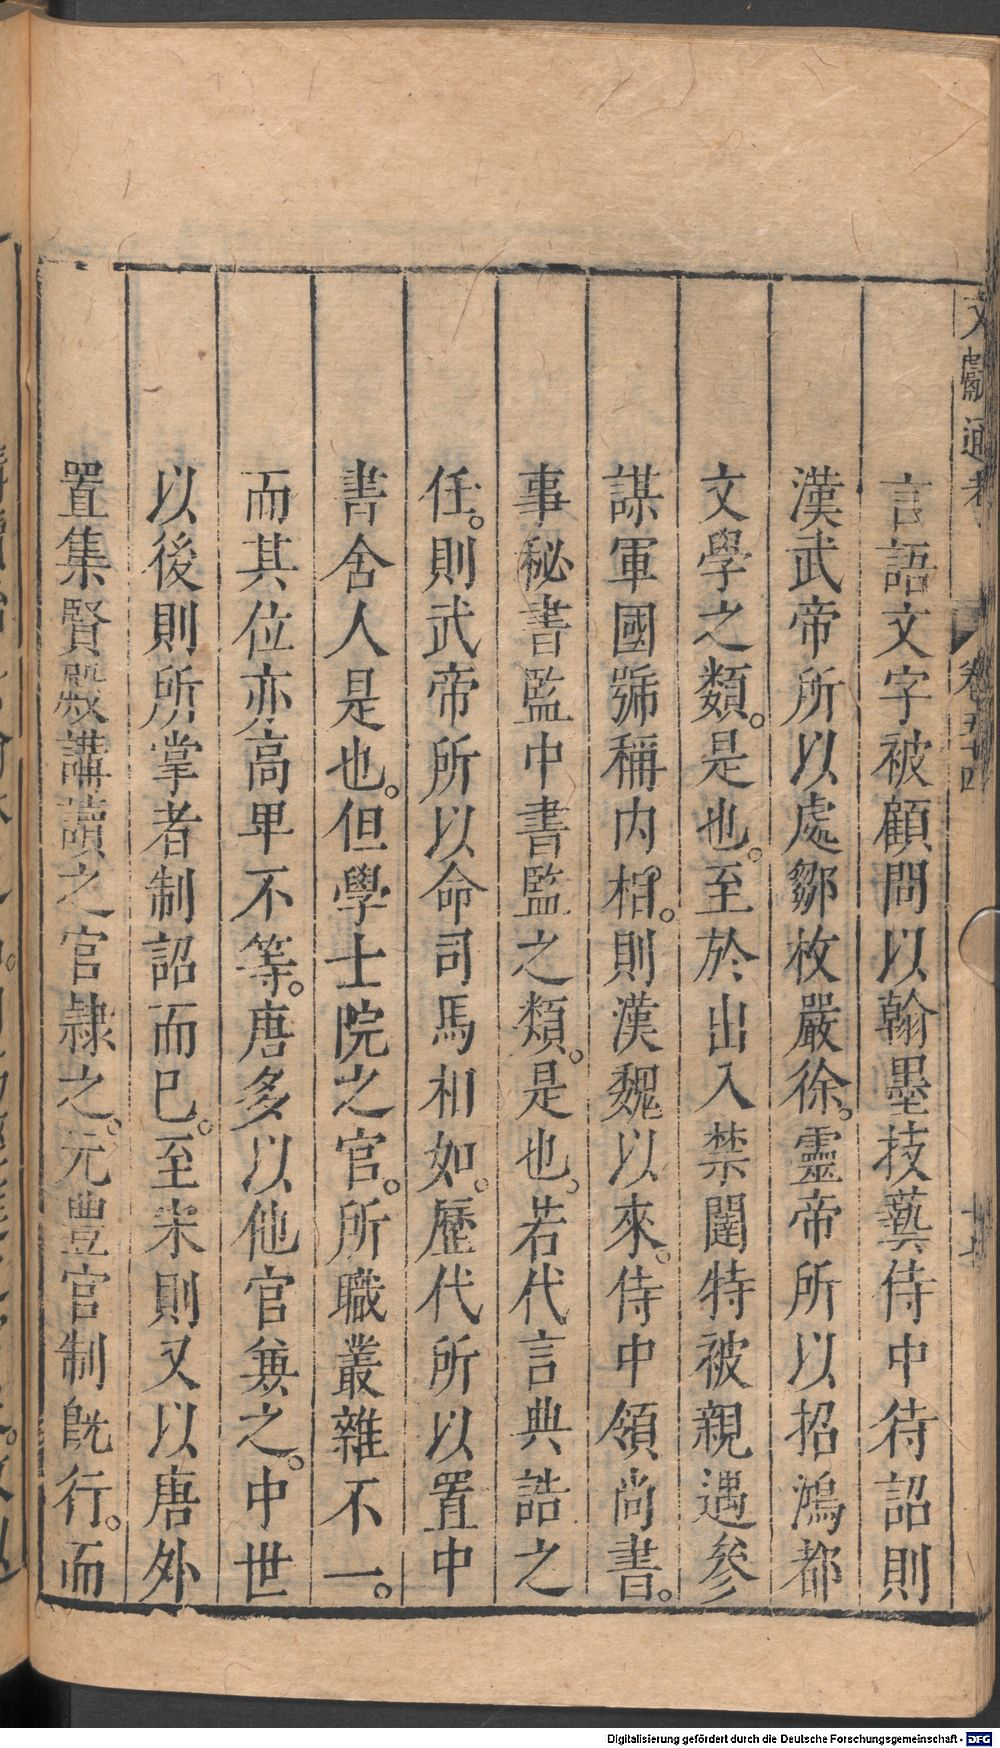 文獻通考
卷五十四
言語文字被顧問以翰墨技藝侍中待詔則
漢武帝所以處鄒枚嚴徐。靈帝所以招鴻都
文學之類。是也。至於出入禁闥特被親遇參
謀軍國號稱内相。則漢魏以來。侍中領尚書。
事秘書監中書監之類。是也。若代言典誥之
任。則武帝所以命司馬相如。歷代所以置中
書舍人是也。但學士院之官。所職叢雜不一。
而其位亦高卑不等。唐多以他官兼之。中世
以後則所掌者制詔而已。至宋則又以唐外
置集賢殿講讀之官隷之。元豐官制既行。而
Digitalisierung gefördert durch die Deutsche Forschungsgemeinschaft - DFG